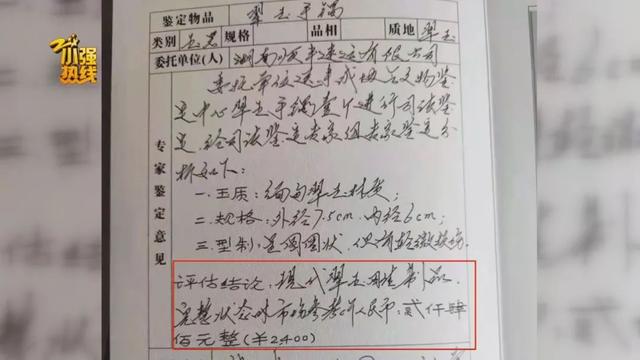 小强热线
鉴定物品 翠玉手镯
类别 玉器 规格 品相 质地 翠玉
委托单位(人) 湖南 有限公司
专家鉴定意见
委托单位送来 文物鉴
定中心翠玉手镯壹个进行司法鉴
定,经司法鉴定专家组专家鉴定分
析如下:
一.玉质:缅甸翠玉材质;
二.规格:外径7.5cm.内径6cm;
三.型制:呈圆圈状,
评估结论:现代翠玉 制品.
完整状态时市场参考价人民币:贰仟肆
佰元整(¥2,400)